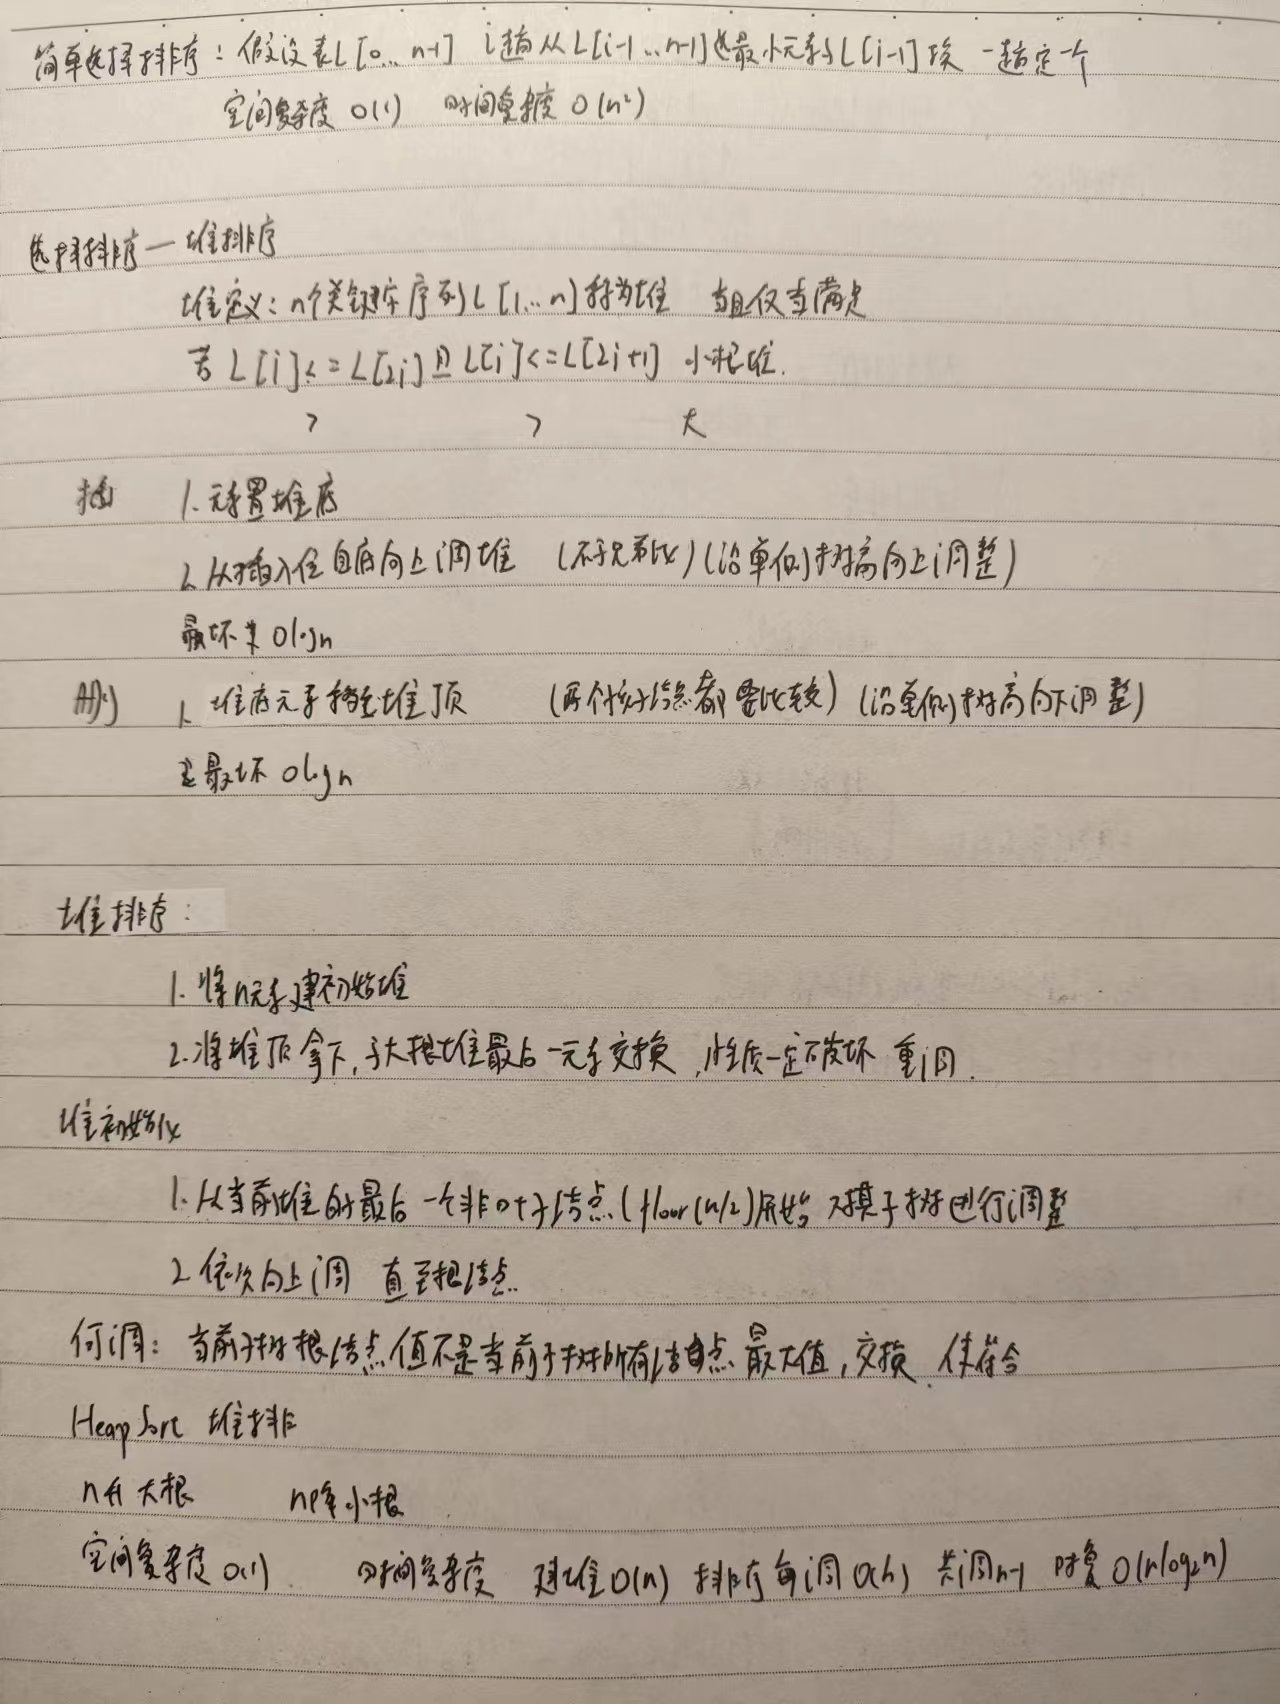 简单选择排序：假设表L[0...n-1] i趟从L[i-1...n-1]选最小元素与L[i-1]换 一趟定一个
空间复杂度 O(1) 时间复杂度 O(n²)
选择排序—堆排序
堆定义：n个关键字序列L[1...n]称为堆 当且仅当满足
若L[i]<=L[2i]且L[i]<=L[2i+1] 小根堆.
> > 大
插 1.元素置堆底
2.从插入位自底向上调堆 (不与兄弟比)(沿单侧树高向上调整)
最坏 Ologn
删 1. 堆底元素移至堆顶 (两个孩子结点都要比较)(沿单侧树高向下调整)
最坏 Ologn
堆排序：
1.将n元素建初始堆
2.将堆顶拿下,与大根堆最后一元素交换,性质一定破坏 重调.
堆初始化
1.从当前堆的最后一个非叶子结点(floor(n/2)开始 对其子树进行调整
2.依次向上调 直至根结点.
何调：当前子树根结点值不是当前子树所有结点最大值,交换.使符合
HeapSort 堆排
n升大根 n降小根
空间复杂度 O(1). 时间复杂度 建堆O(n) 排序每调O(h) 共调n-1 时复O(nlog₂n)